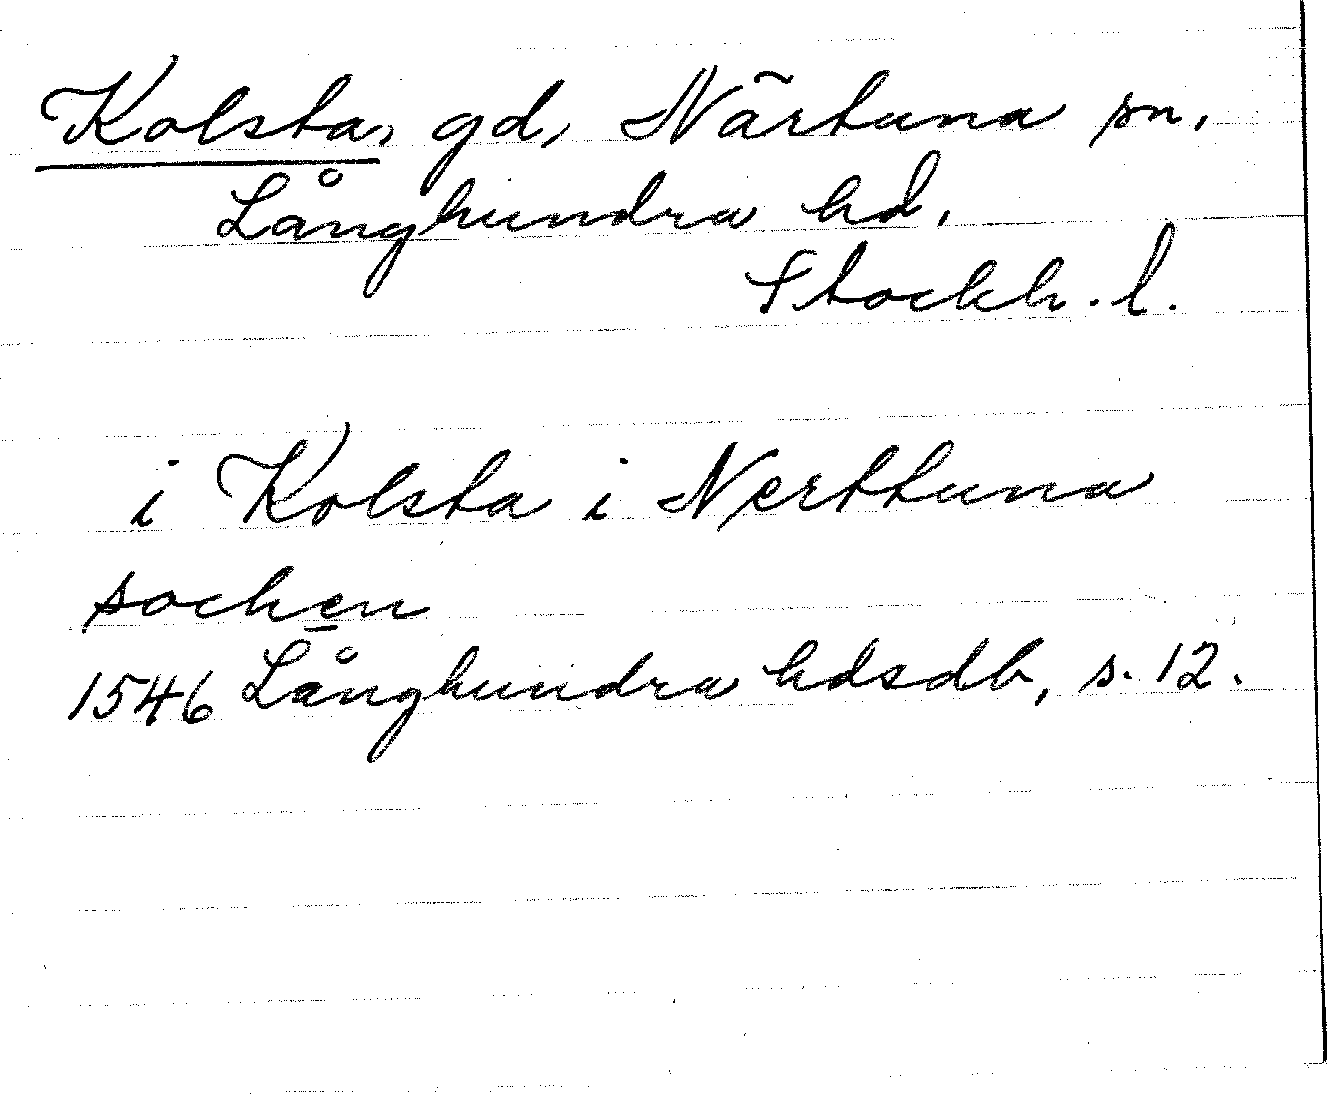 Kolsta, gd, Närtuna sn,
Långhundra hd,
Stockh. l.
i Kolsta i Nerttuna
sochen
1546 Långhundra hdsdb, s. 12.